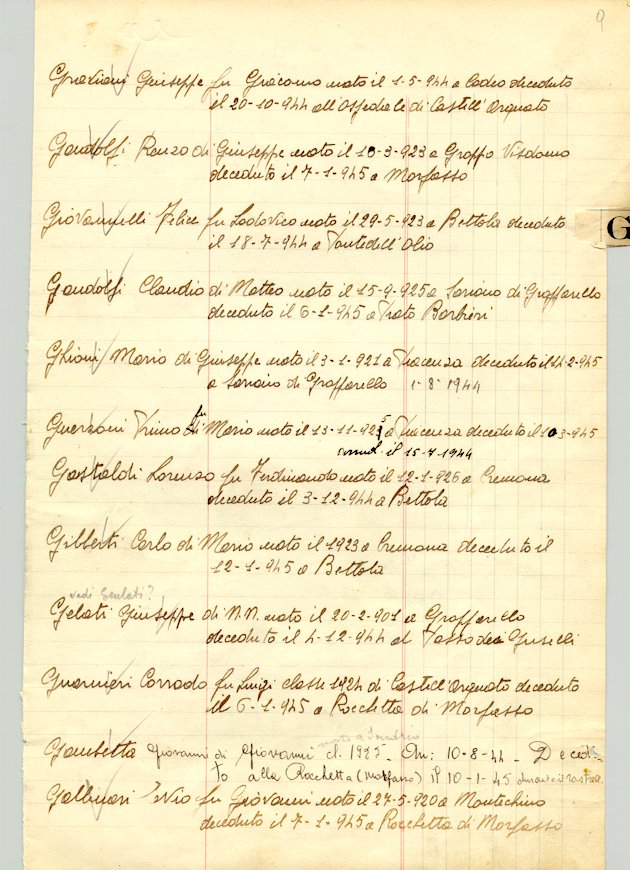 9
Graziani Giuseppe fu Giacomo nato il 1-5-944 a Cadeo deceduto
il 20-10-944 all'Ospedale di Castell'Arquato
Gandolfi Renzo di Giuseppe nato il 10-3-923 a Groppo Visdomo
deceduto il 7-1-945 a Morfasso
G
Giovannelli Felice fu Lodovico nato il 29-5-923 a Bettola deceduto
il 18-7-944 a Pontedell'Olio
Gandolfi Claudio di Matteo nato il 15-9-925 a Sariano di Gropparello
deceduto il 6-1-945 a Prato Barbieri
Ghioni Mario di Giuseppe nato il 3-1-921 a Piacenza deceduto il 14-2-945
a Sariano di Gropparello 1-8-1944
Guerzoni Primo fu Mario nato il 13-11-925 a Piacenza deceduto il 10-3-945
il 15-7-1944
Gastaldi Lorenzo fu Ferdinando nato il 12-1-926 a Cremona
deceduto il 3-12-944 a Bettola
Gilberti Carlo di Mario nato il 1923 a Cremona deceduto il
12-1-945 a Bettola
vedi Genlati?
Gelati Giuseppe di N.N. nato il 20-2-901 a Gropparello
deceduto il 4-12-944 al Passo dei Guselli
Guarnieri Corrado fu Luigi classe 1924 di Castell'Arquato deceduto
il 6-1-945 a Rocchetta di Morfasso
a Sondrio
Gansetta Giovanni di Giovanni cl. 1925. An: 10-8-44 - Deced.
to alla Rocchetta (Morfasso) il 10-1-45 durante il
Gallinari Nevio fu Giovanni nato il 27-5-920 a Montechino
deceduto il 7-1-945 a Rocchetta di Morfasso